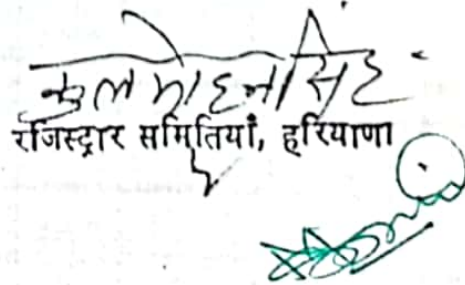 कुलमोहन सिंह
रजिस्ट्रार समितियां, हरियाणा